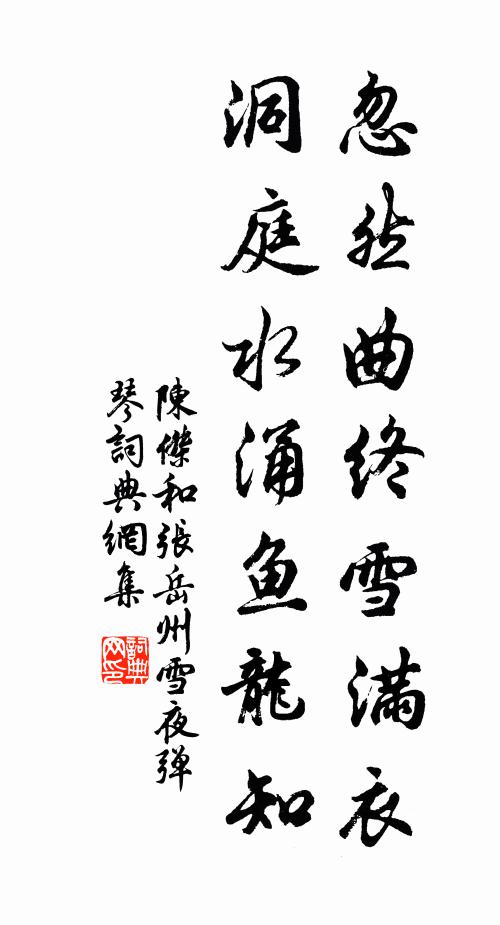 忽然曲终雪满衣
洞庭水涌鱼龍知
陳傑和張岳州雪夜弹
琴詞典網集
詞典网印